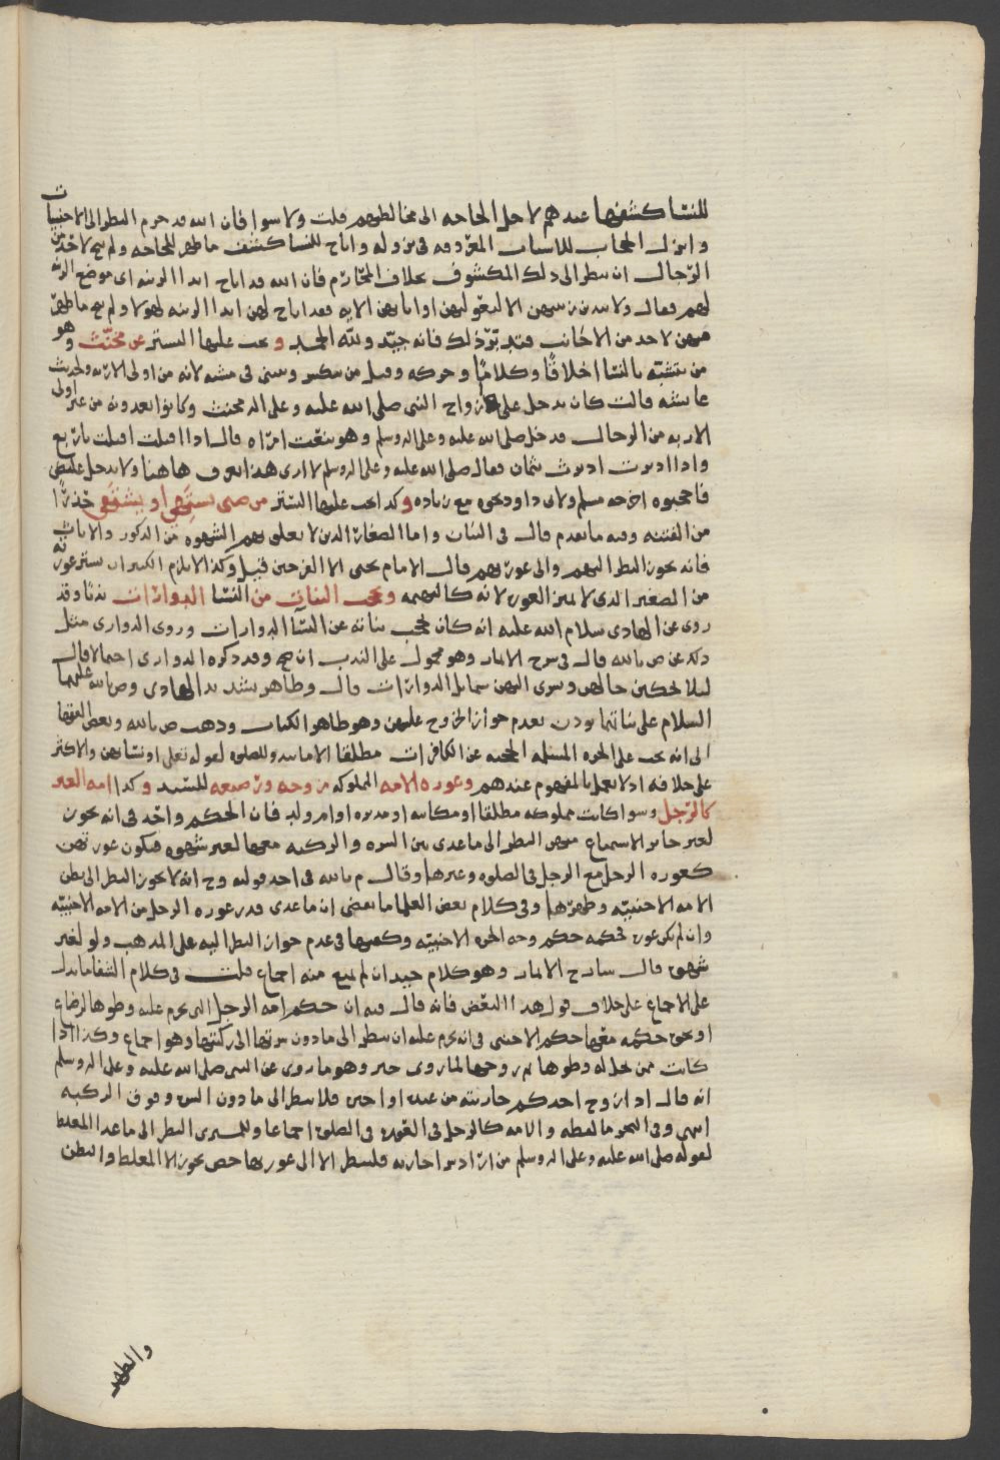 للنسا كشفها عندهم لاجل الحاجه الى مخالطتهم قلت ولا سوا فان الله قد حرم النظر الى الاجنبيات
وانزل الحجاب للاسباب المعروفه في نزوله واباح للنسا كشف ما ظهر للحاجه ولم يبح لاحد من
الرجال ان ينظر الى ذلك المكشوف بخلاف المحارم فان الله قد اباح ابدا الزينه اى موضع الزينه
لهم فقال ولا يبدين زينتهن الا لبعولتهن او ابائهن الايه فقد اباح لهن ابدا الزينه لهولا ولم يبح ما ظهر
منهن لاحد من الاجانب فتدبر ذلك فانه جيد ولله الحمد ويجب عليها التستر عن مخنث وهو
من يتشبه بالنسا اخلاقا وكلاما وحركه وقيل من ينكسر ويتثنى في مشيه لانه من اولى الاربه ولحديث
عايشه قالت كان يدخل على ازواج النبي صلى الله عليه وعلى اله مخنث وكانوا يعدونه من غير اولى
الاربه من الرجال فدخل صلى الله عليه وعلى اله وسلم وهو ينعت امراه قال اذا اقبلت اقبلت باربع
واذا ادبرت ادبرت بثمان فقال صلى الله عليه وعلى اله وسلم لا ارى هذا يعرف هاهنا ولا يدخل عليكن
فاحجبوه اخرجه مسلم ولابى داود نحوه مع زياده وكذا يجب عليها التستر من صبي يشتهي او يشتهى حذرا
من الفتنه وفيه ما تقدم قال في البيان واما الصغار الذين لا يعلق بهم الشهوه من الذكور والاناث
فانه يجوز النظر اليهم والى عورتهم قال الامام يحيى الا الفرجين قيل وكذا لا يلزم الكبير ان يستر عورته
من الصغير الذى لا يميز العوره لانه كالبهيمه ويحجب البنات من النسا الدوارات ندبا وقد
روى عن الهادى سلام الله عليه انه كان يحجب بناته عن النسا الدوارات وروى الدوارى مثل
ذلك عن ص بالله قال في شرح الاثمار وهو محمول على الندب ان صح وقد ذكره الدوارى احتمالا قال
ليلا يحكين حالهن ويسرى اليهن شمايل الدوارات قال وظاهر تشديد الهادى وص بالله عليهما
السلام على بناتهما يوذن بعدم جواز الخروج عليهن وهو ظاهر الكتاب وذهب ص بالله وبعض الفقها
الى انه يجب على الحره المسلمه الحجبه عن الكافرات مطلقا الا ما يبدو للصلوه لقوله تعالى او نسائهن والاكثر
على خلافه اذ لا يعمل بالمفهوم عندهم وعوره الامه المملوكه مزوجه ورضيعه للسيد وكذا امه الغير
كالرجل وسوا كانت مملوكه مطلقا او مكاتبه او مدبره او ام ولد فان الحكم واحد في انه يجوز
لغير جايز الاستمتاع منهن النظر الى ما عدى بين السره والركبه معها لغير شهوه فتكون عورتهن
كعوره الرجل مع الرجل في الصلوه وغيرها وقال م بالله في احد قوليه وح انه لا يجوز النظر الى بطن
الامه الاجنبيه وظهرها وفي كلام بعض العلما ما يقضى ان ما عدى قدر عوره الرجل من الامه الاجنبيه
وان لم يكن عوره فحكمه حكم وجه الحره الاجنبيه وكفيها في عدم جواز النظر اليه على المذهب ولو لغير
شهوه قال شارح الاثمار وهو كلام جيد ان لم يمنع منه اجماع قلت في كلام الشفا ما يدل
على الاجماع على خلاف قول هذا البعض فانه قال فيه ان حكم امه الرجل التى يحرم عليه وطوها لرضاع
او نحوه حكمه معها حكم الاجنبى في انه يحرم عليه ان ينظر الى ما دون سرتها الى ركبتها وهو اجماع وكذا اذا
كانت ممن يحل له وطوها ثم زوجها لما روى خبر وهو ما روى عن النبى صلى الله عليه وعلى اله وسلم
انه قال اذا زوج احدكم جاريته من عبده او اجيره فلا ينظر الى ما دون السره وفوق الركبه
انتهى وفي البحر ما لفظه والامه كالرجل في العوره في الصلوه اجماعا وللمشترى النظر الى ما عدا المغلظ
لقوله صلى الله عليه وعلى اله وسلم من اراد شرا جاريه فلينظر الا الى عورتها حص يجوز الا المغلظ والبطن
والظهر